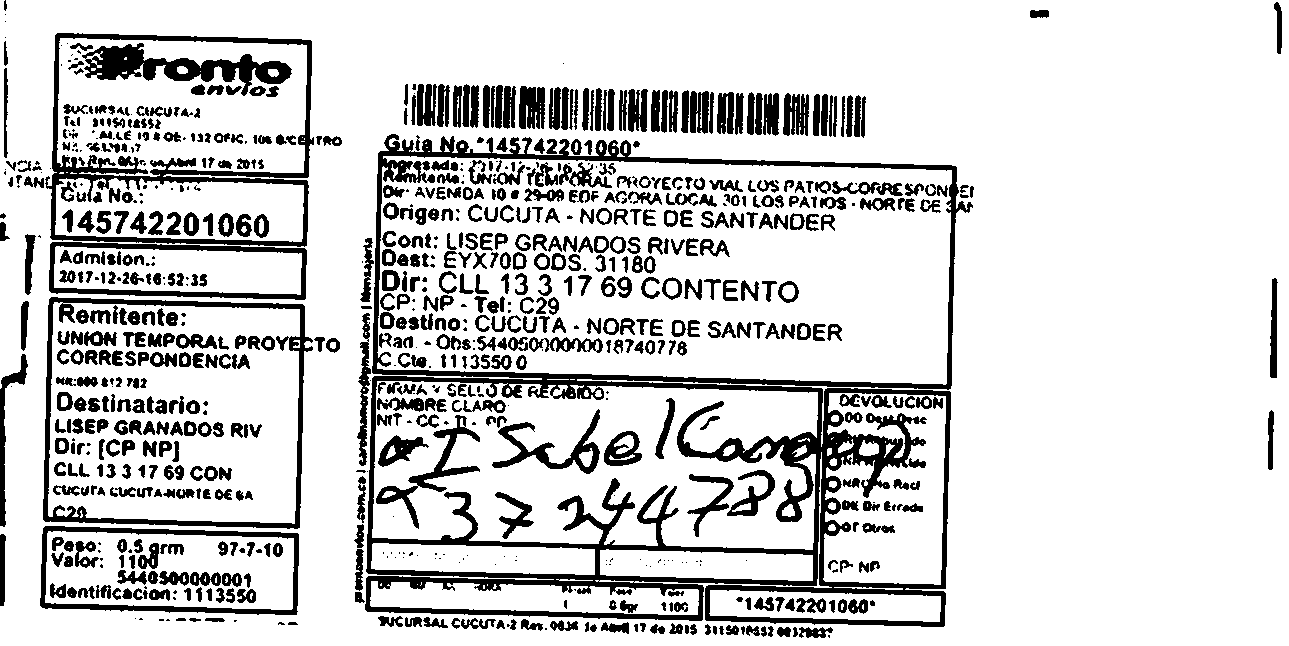 Pronto
envios
SUCURSAL CUCUTA-2
Tel. 3115018552
Dir. CALLE 19 # OE- 132 OFIC. 106 B/CENTRO
Guia No.:
145742201060
Admision.:
2017-12-26-16:52:35
Remitente:
UNION TEMPORAL PROYECTO
CORRESPONDENCIA
Destinatario:
LISEP GRANADOS RIV
Dir: [CP NP]
CLL 13 3 17 69 CON
CUCUTA CUCUTA-NORTE DE SA
C29
Peso: 0.5 grm 97-7-10
Valor: 1100
5440500000001
Identificacion: 1113550
Guia No.*145742201060*
Ingresada: 2017-12-26-16:52:35
Remitente: UNION TEMPORAL PROYECTO VIAL LOS PATIOS-CORRESPONDEN
Dir: AVENIDA 10 # 29-09 EDF AGORA LOCAL 301 LOS PATIOS - NORTE DE SAN
Origen: CUCUTA - NORTE DE SANTANDER
Cont: LISEP GRANADOS RIVERA
Dest: EYX70D ODS. 31180
Dir: CLL 13 3 17 69 CONTENTO
CP: NP - Tel: C29
Destino: CUCUTA - NORTE DE SANTANDER
Rad. - Obs:54405000000018740778
C.Cte. 1113550 0
FIRMA Y SELLO DE RECIBIDO:
NOMBRE CLARO
NIT - CC - TI -
Isabel Camargo
37244788
DEVOLUCION
DD Dest Desc
NR No Recl
DE Dir Errada
OT Otros
CP: NP
HORA
Peso Valor
1 0.5gr 1100
*145742201060*
SUCURSAL CUCUTA-2 Res. 0836 de Abril 17 de 2015 3115018552